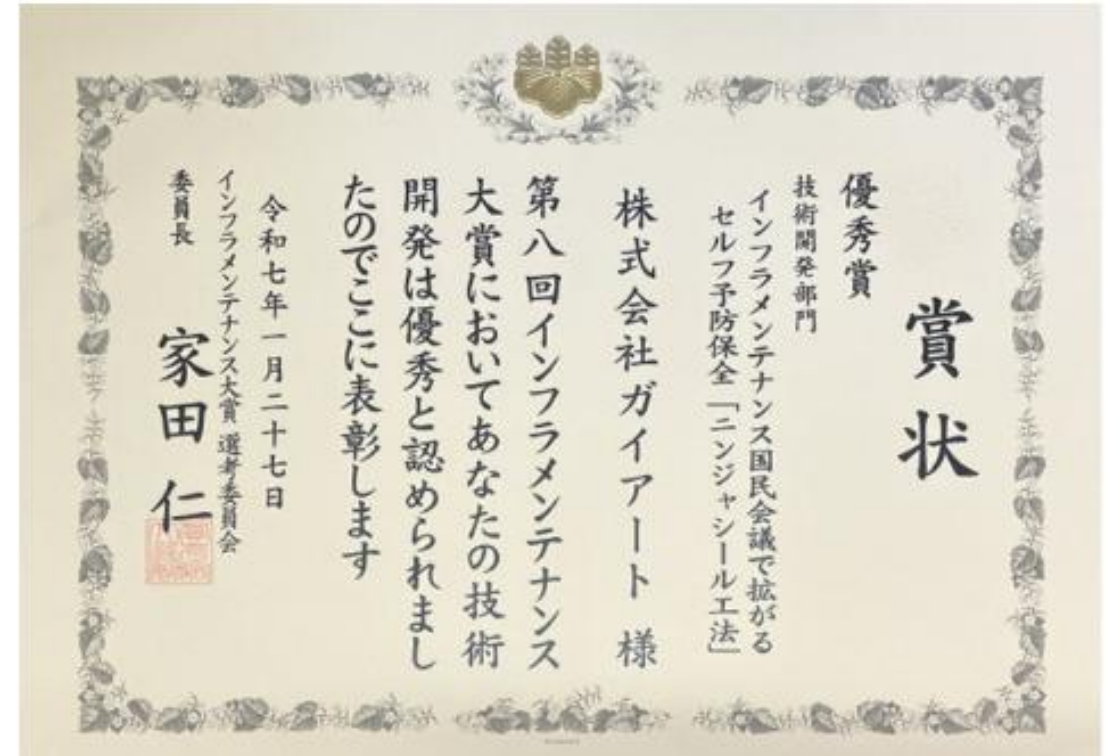 賞状
優秀賞
技術開発部門
インフラメンテナンス国民会議で拡がる
セルフ予防保全「ニンジャシール工法」
株式会社ガイアート 様
第八回インフラメンテナンス
大賞においてあなたの技術
開発は優秀と認められまし
たのでここに表彰します
令和七年一月二十七日
インフラメンテナンス大賞 選考委員会
委員長 家田 仁